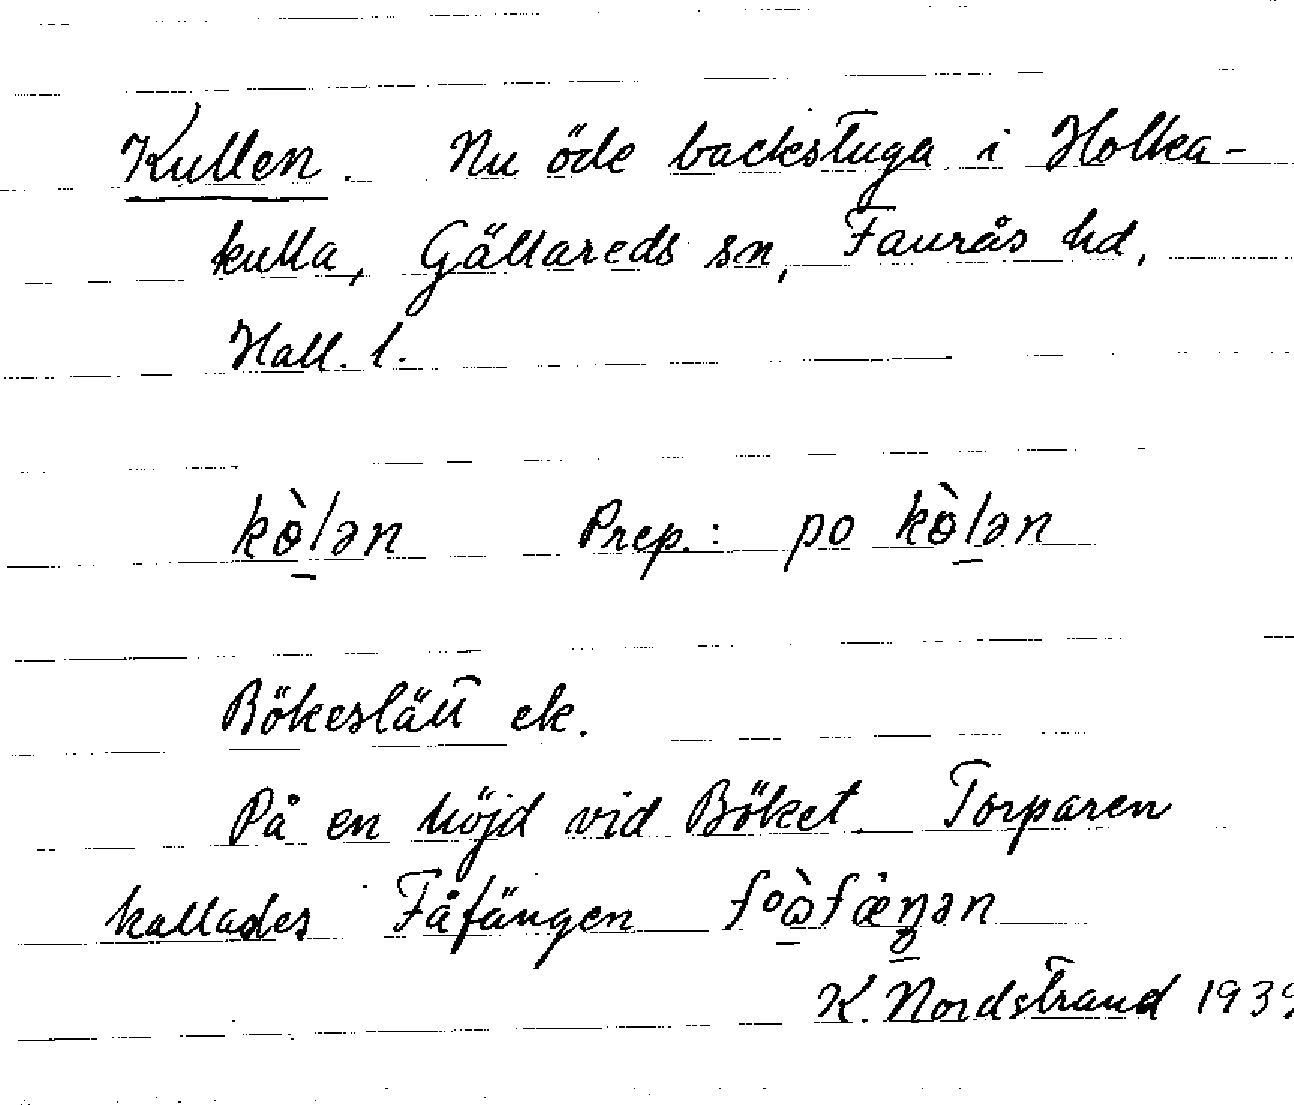 Kullen. Nu öde backstuga i Holka-
kulla, Gällareds sn, Faurås hd,
Hall. l.
kɵ̀lən Prep.: po kɵ̀lən
Bökeslätt ek.
På en höjd vid Böket. Torparen
kallades Fåfängen
K. Nordstrand 1939